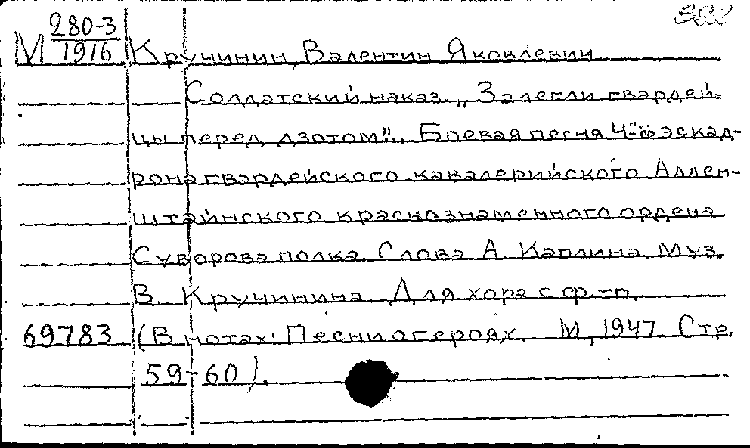 М 280-3/1916 Кручинин, Валентин Яковлевич
Солдатский наказ. „Залегли гвардей-
цы перед дзотом“. Боевая песня 4-го эскад-
рона гвардейского кавалерийского Аллен-
штайнского краснознаменного ордена
Суворова полка. Слова А. Каплина. Муз.
В. Кручинина. Для хора с ф.-п.
69783 (В нотах: Песни о героях. М, 1947. Стр.
59-60).